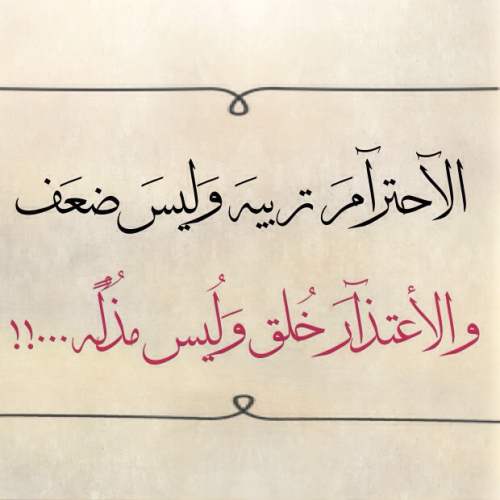 الآحترآمَ تربيهَ وَليسَ ضعَف
والأعتذآرَ خُلق وَلُيس مذُلًه...!!